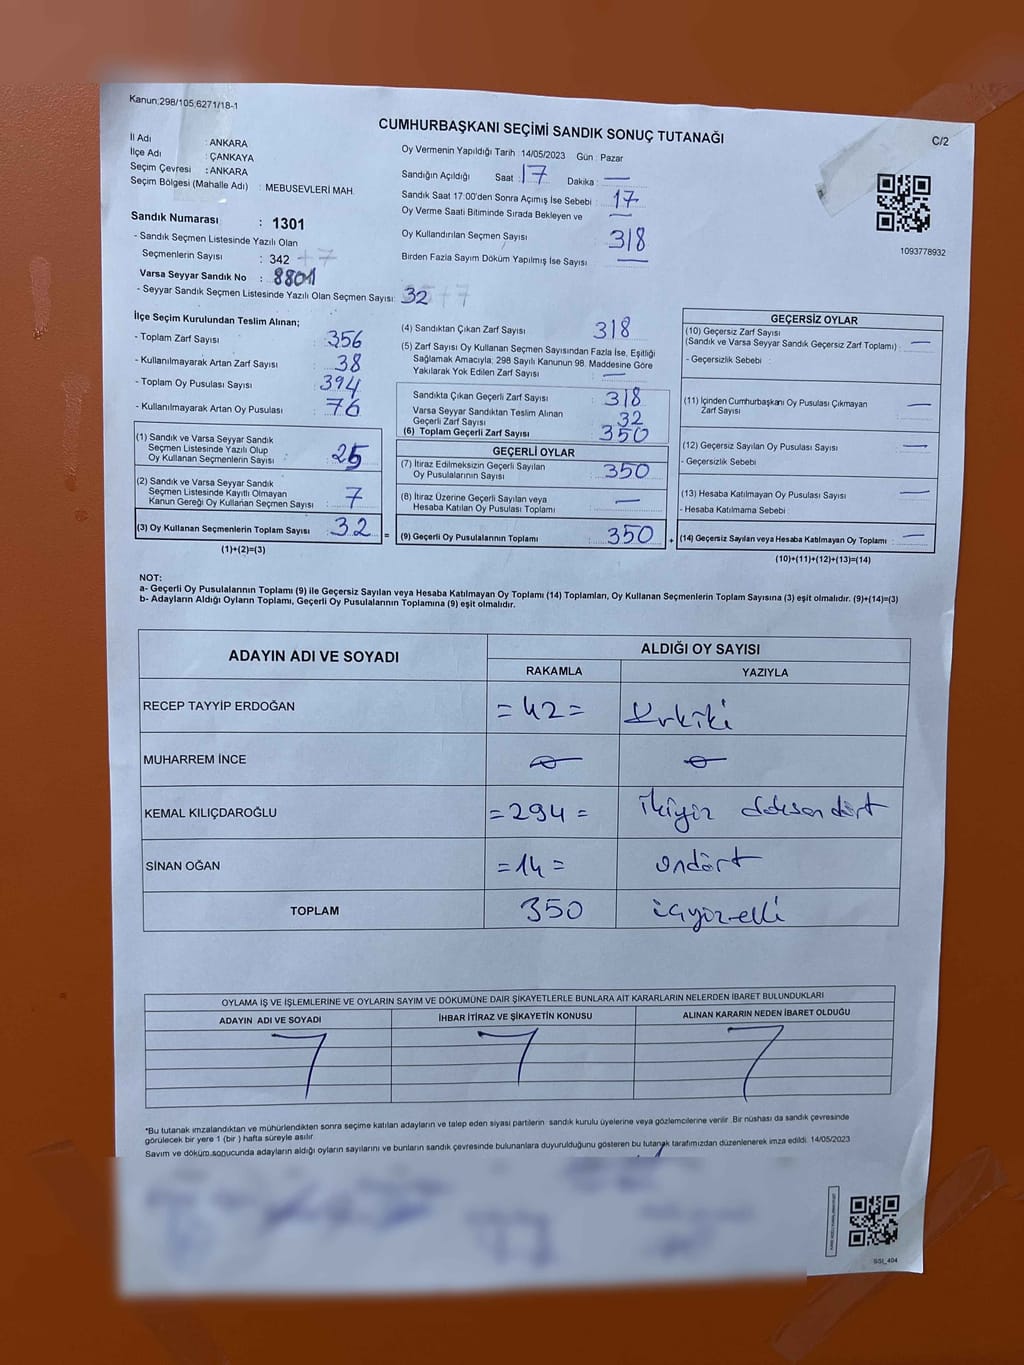 Kanun;298/105;6271/18-1
CUMHURBAŞKANI SEÇİMİ SANDIK SONUÇ TUTANAĞI
C/2
İl Adı : ANKARA
İlçe Adı : ÇANKAYA
Seçim Çevresi : ANKARA
Seçim Bölgesi (Mahalle Adı) : MEBUSEVLERİ MAH.
Sandık Numarası : 1301
- Sandık Seçmen Listesinde Yazılı Olan
Seçmenlerin Sayısı : 342 +7
Varsa Seyyar Sandık No : 8801
- Seyyar Sandık Seçmen Listesinde Yazılı Olan Seçmen Sayısı: 32 +7
Oy Vermenin Yapıldığı Tarih : 14/05/2023 Gün : Pazar
Sandığın Açıldığı Saat : 17 Dakika : —
Sandık Saat 17:00'den Sonra Açımış İse Sebebi : 17
Oy Verme Saati Bitiminde Sırada Bekleyen ve —
Oy Kullandırılan Seçmen Sayısı 318
Birden Fazla Sayım Döküm Yapılmış İse Sayısı —
1093778932
İlçe Seçim Kurulundan Teslim Alınan;
- Toplam Zarf Sayısı : 356
- Kullanılmayarak Artan Zarf Sayısı : 38
- Toplam Oy Pusulası Sayısı : 394
- Kullanılmayarak Artan Oy Pusulası : 76
(1) Sandık ve Varsa Seyyar Sandık
Seçmen Listesinde Yazılı Olup
Oy Kullanan Seçmenlerin Sayısı : 25
(2) Sandık ve Varsa Seyyar Sandık
Seçmen Listesinde Kayıtlı Olmayan
Kanun Gereği Oy Kullanan Seçmen Sayısı : 7
(3) Oy Kullanan Seçmenlerin Toplam Sayısı : 32 =
(1)+(2)=(3)
(4) Sandıktan Çıkan Zarf Sayısı 318
(5) Zarf Sayısı Oy Kullanan Seçmen Sayısından Fazla İse, Eşitliği
Sağlamak Amacıyla, 298 Sayılı Kanunun 98. Maddesine Göre
Yakılarak Yok Edilen Zarf Sayısı : —
Sandıkta Çıkan Geçerli Zarf Sayısı : 318
Varsa Seyyar Sandıktan Teslim Alınan
Geçerli Zarf Sayısı : 32
(6) Toplam Geçerli Zarf Sayısı : 350
GEÇERLİ OYLAR
(7) İtiraz Edilmeksizin Geçerli Sayılan
Oy Pusulalarının Sayısı : 350
(8) İtiraz Üzerine Geçerli Sayılan veya
Hesaba Katılan Oy Pusulası Toplamı : —
(9) Geçerli Oy Pusulalarının Toplamı : 350 +
GEÇERSİZ OYLAR
(10) Geçersiz Zarf Sayısı
(Sandık ve Varsa Seyyar Sandık Geçersiz Zarf Toplamı) : —
- Geçersizlik Sebebi :
(11) İçinden Cumhurbaşkanı Oy Pusulası Çıkmayan
Zarf Sayısı : —
(12) Geçersiz Sayılan Oy Pusulası Sayısı : —
- Geçersizlik Sebebi
(13) Hesaba Katılmayan Oy Pusulası Sayısı : —
- Hesaba Katılmama Sebebi :
(14) Geçersiz Sayılan veya Hesaba Katılmayan Oy Toplamı : —
(10)+(11)+(12)+(13)=(14)
NOT:
a- Geçerli Oy Pusulalarının Toplamı (9) ile Geçersiz Sayılan veya Hesaba Katılmayan Oy Toplamı (14) Toplamları, Oy Kullanan Seçmenlerin Toplam Sayısına (3) eşit olmalıdır. (9)+(14)=(3)
b- Adayların Aldığı Oyların Toplamı, Geçerli Oy Pusulalarının Toplamına (9) eşit olmalıdır.
ADAYIN ADI VE SOYADI
ALDIĞI OY SAYISI
RAKAMLA YAZIYLA
RECEP TAYYİP ERDOĞAN =42= Kırkiki
MUHARREM İNCE
KEMAL KILIÇDAROĞLU =294= ikiyüz doksan dört
SİNAN OĞAN =14= ondört
TOPLAM 350 üçyüzelli
OYLAMA İŞ VE İŞLEMLERİNE VE OYLARIN SAYIM VE DÖKÜMÜNE DAİR ŞİKAYETLERLE BUNLARA AİT KARARLARIN NELERDEN İBARET BULUNDUKLARI
ADAYIN ADI VE SOYADI İHBAR İTİRAZ VE ŞİKAYETİN KONUSU ALINAN KARARIN NEDEN İBARET OLDUĞU
*Bu tutanak imzalandıktan ve mühürlendikten sonra seçime katılan adayların ve talep eden siyasi partilerin sandık kurulu üyelerine veya gözlemcilerine verilir. Bir nüshası da sandık çevresinde
görülecek bir yere 1 (bir) hafta süreyle asılır.
Sayım ve döküm sonucunda adayların aldığı oyların sayılarını ve bunların sandık çevresinde bulunanlara duyurulduğunu gösteren bu tutanak tarafımızdan düzenlenerek imza edildi. 14/05/2023
SSI_404